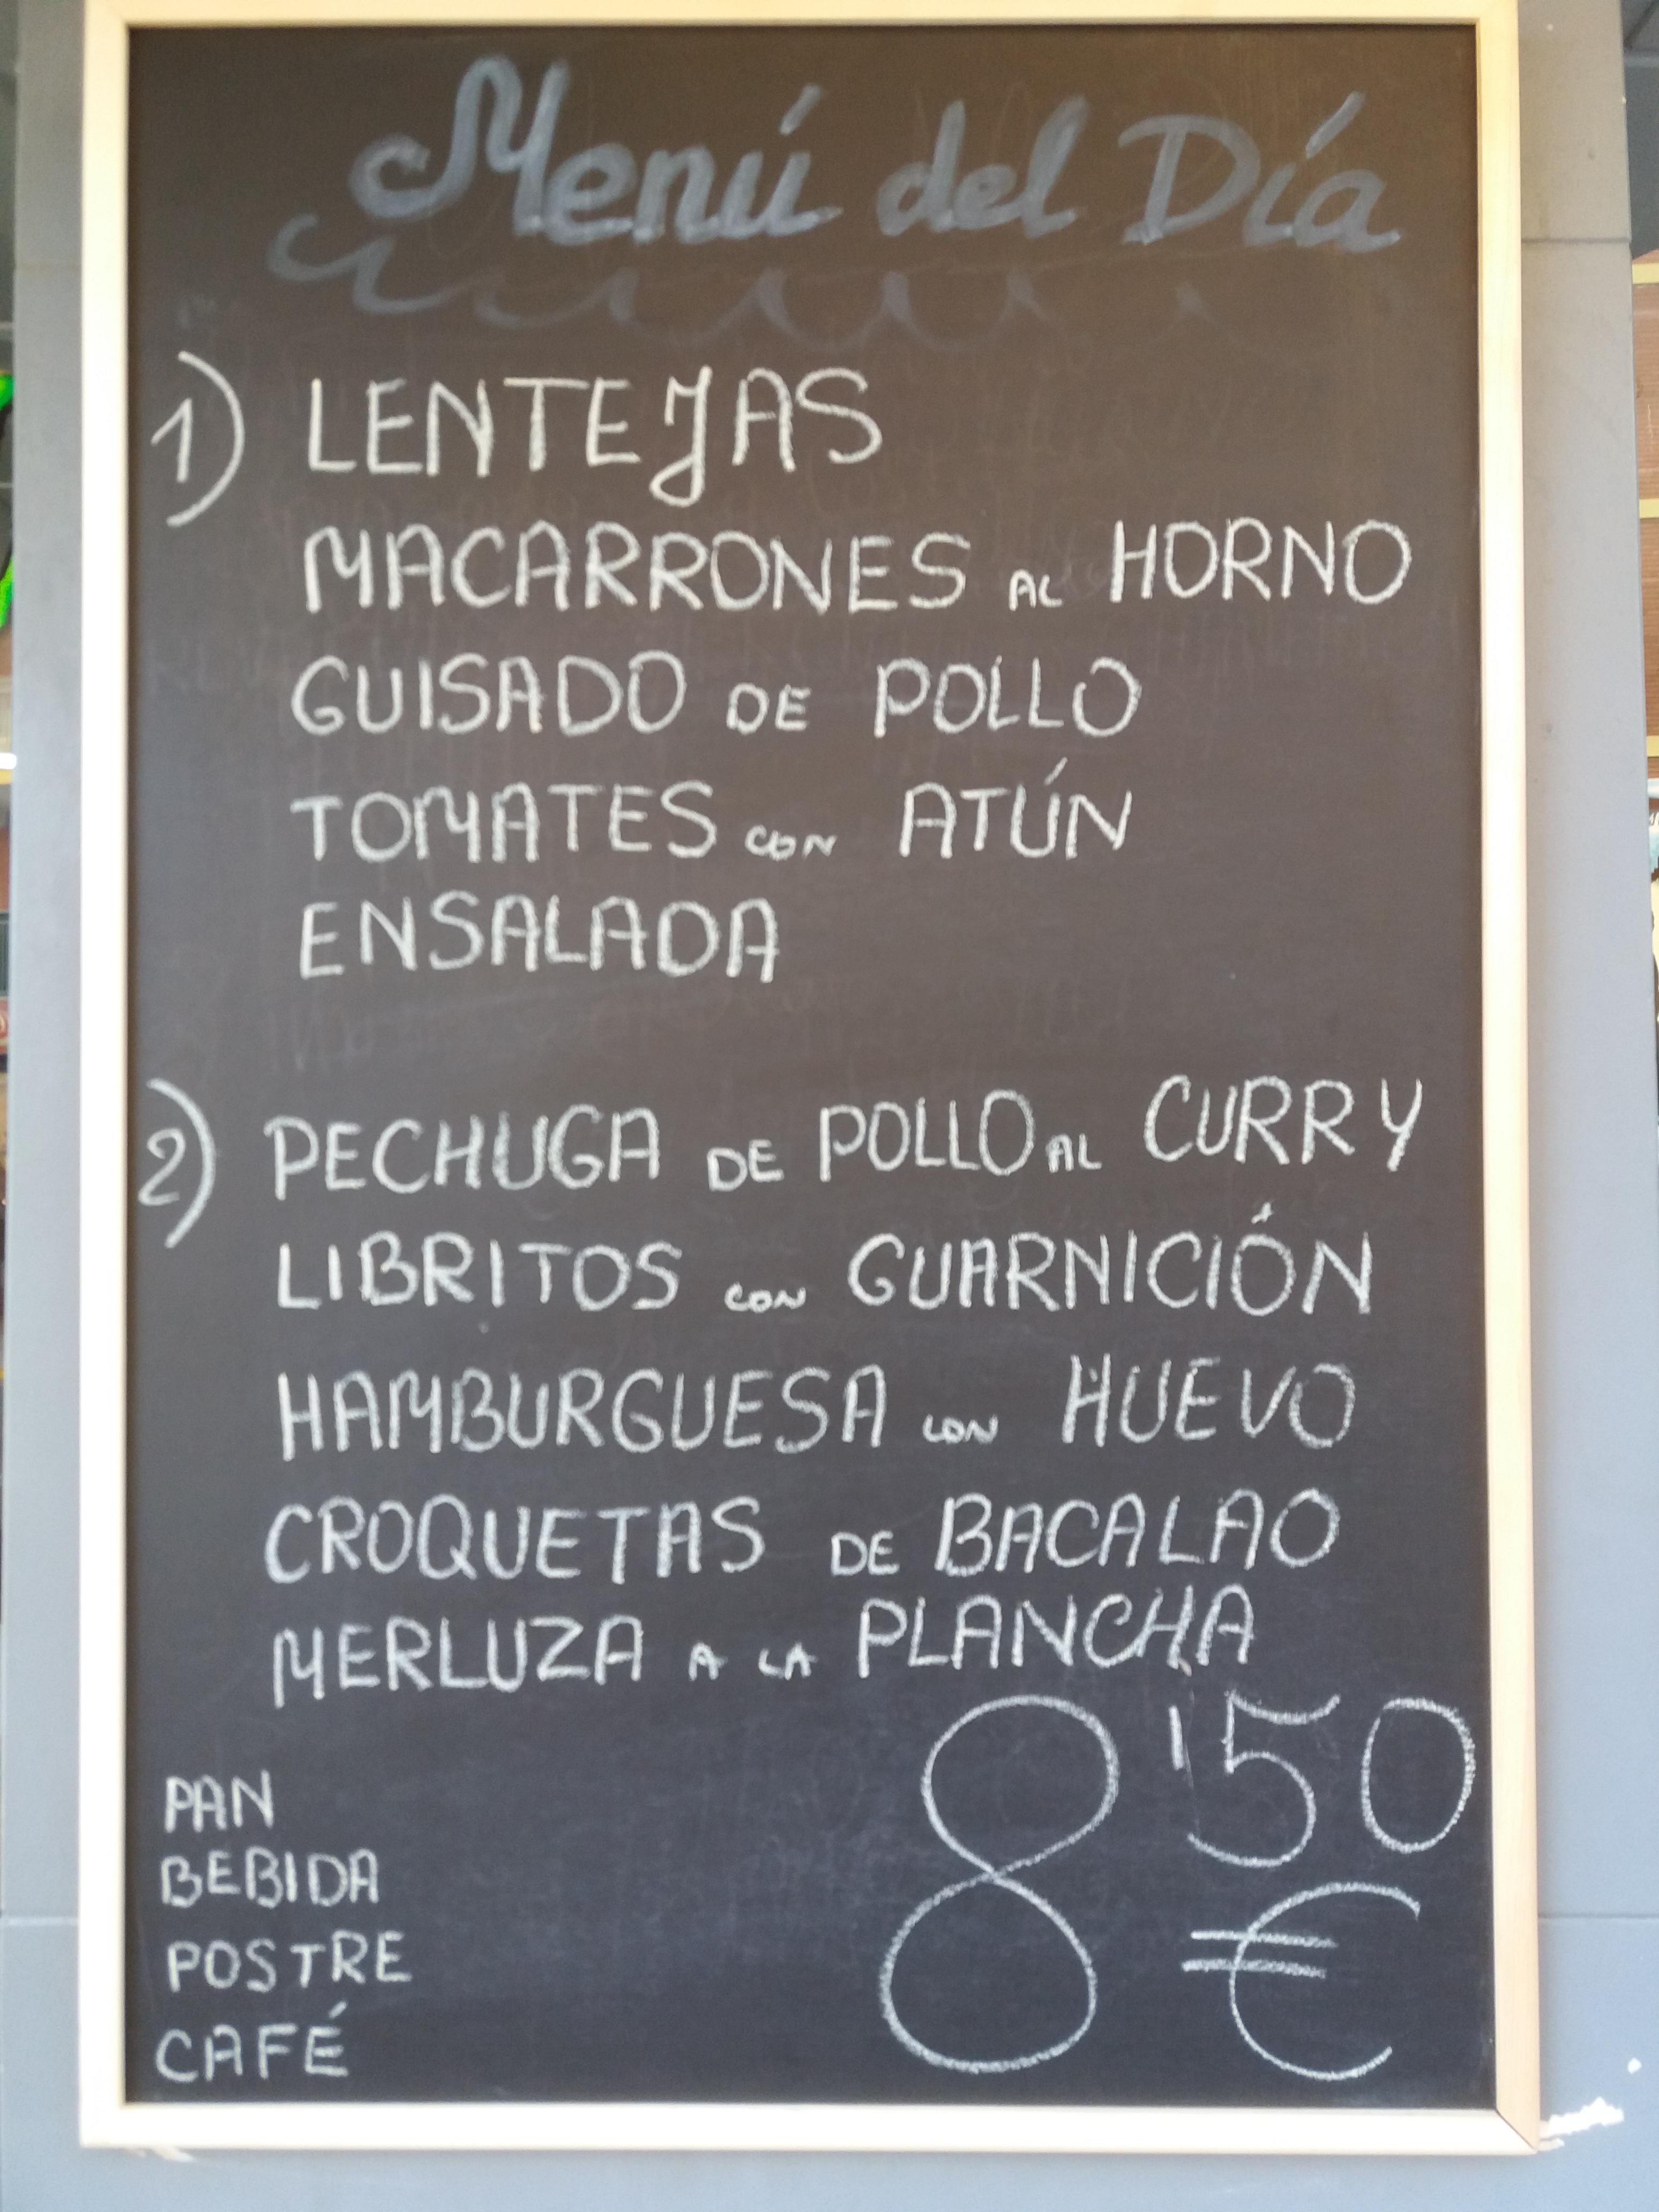 Menú del Día
1) LENTEJAS
MACARRONES AL HORNO
GUISADO DE POLLO
TOMATES CON ATÚN
ENSALADA
2) PECHUGA DE POLLO AL CURRY
LIBRITOS CON GUARNICIÓN
HAMBURGUESA CON HUEVO
CROQUETAS DE BACALAO
MERLUZA A LA PLANCHA
PAN
BEBIDA
POSTRE
CAFÉ
8'50
€